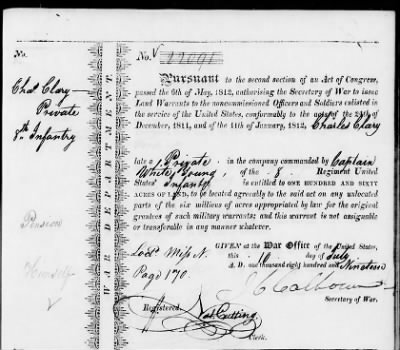 No.
Chas Clary
Private
8th Infantry
Pension
Himself
WAR DEPARTMENT.
No. 22091
PURSUANT to the second section of an Act of Congress,
passed the 6th of May, 1812, authorising the Secretary of War to issue
Land Warrants to the noncommissioned Officers and Soldiers enlisted in
the service of the United States, conformably to the acts of the 24th of
December, 1811, and of the 11th of January, 1812, Charles Clary
late a Private in the company commanded by Captain
White Young, of the 8 Regiment United
States' Infantry is entitled to ONE HUNDRED AND SIXTY
ACRES OF LAND, to be located agreeably to the said act on any unlocated
parts of the six millions of acres appropriated by law for the original
grantees of such military warrants; and this warrant is not assignable
or transferable in any manner whatever.
GIVEN at the War Office of the United States,
this 10 day of July
A. D. one thousand eight hundred and Nineteen
Locd Miss N.
Page 170.
J C Calhoun
Secretary of War.
Registered
Nat Cutting
Clerk.